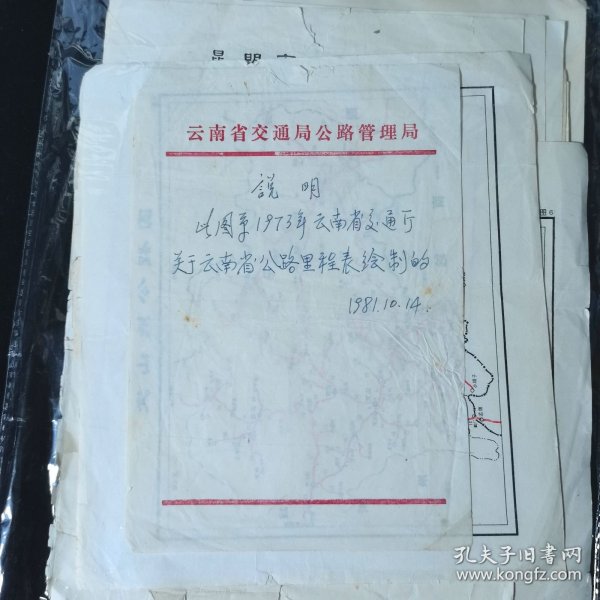 昆明市
云南省交通局公路管理局
説明
此图享1973年云南省交通厅
关于云南省公路里程表绘制的
1981.10.14.
图6
孔夫子旧书网
www.kongfz.com